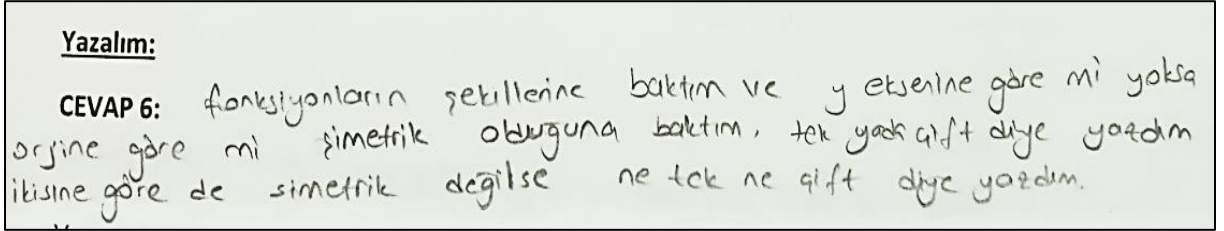 Yazalım:
CEVAP 6: fonksiyonların şekillerine baktım ve y eksenine göre mi yoksa
orjine göre mi simetrik olduğuna baktım, tek yada çift diye yazdım
ikisine göre de simetrik değilse ne tek ne çift diye yazdım.